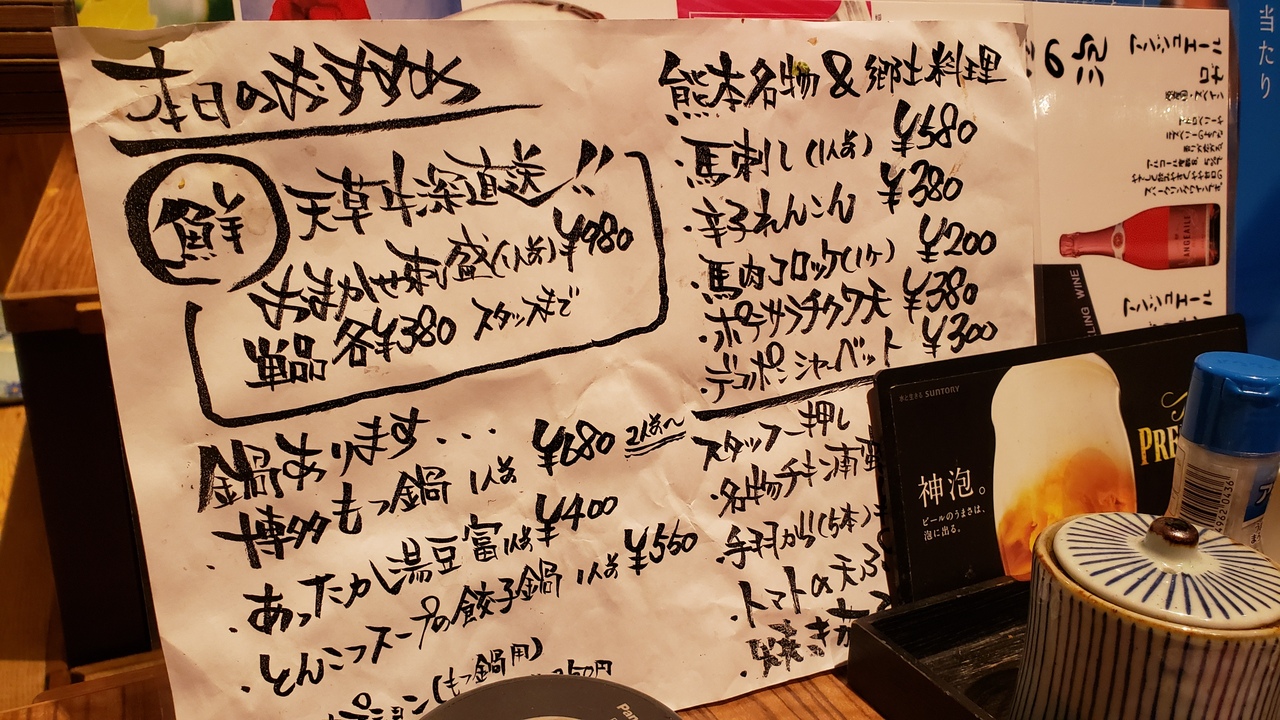 本日のおすすめ
鮮
天草牛深直送!!
おまかせ刺盛(1人前)¥980
単品 各¥380 スタッフまで
鍋あります・・・
・博多もつ鍋 1人前 ¥680 2人前〜
・あったかい湯豆富 1人前 ¥400
・とんこつスープの餃子鍋 1人前 ¥550
(もつ鍋用)
熊本名物&郷土料理
・馬刺し(1人前) ¥580
・辛子れんこん ¥380
・馬肉コロッケ(1ケ) ¥200
・ポテサラチクワ天 ¥380
・デコポンシャーベット ¥300
スタッフ一押し
・名物チキン南蛮
・手羽から(5本)
・トマトの天ぷ
・焼き
当たり
の泡
アンジュエール
ロゼ
WINE
アンジュエール
水と生きる SUNTORY
神泡。
ビールのうまさは、
泡に出る。
PRE
Pan